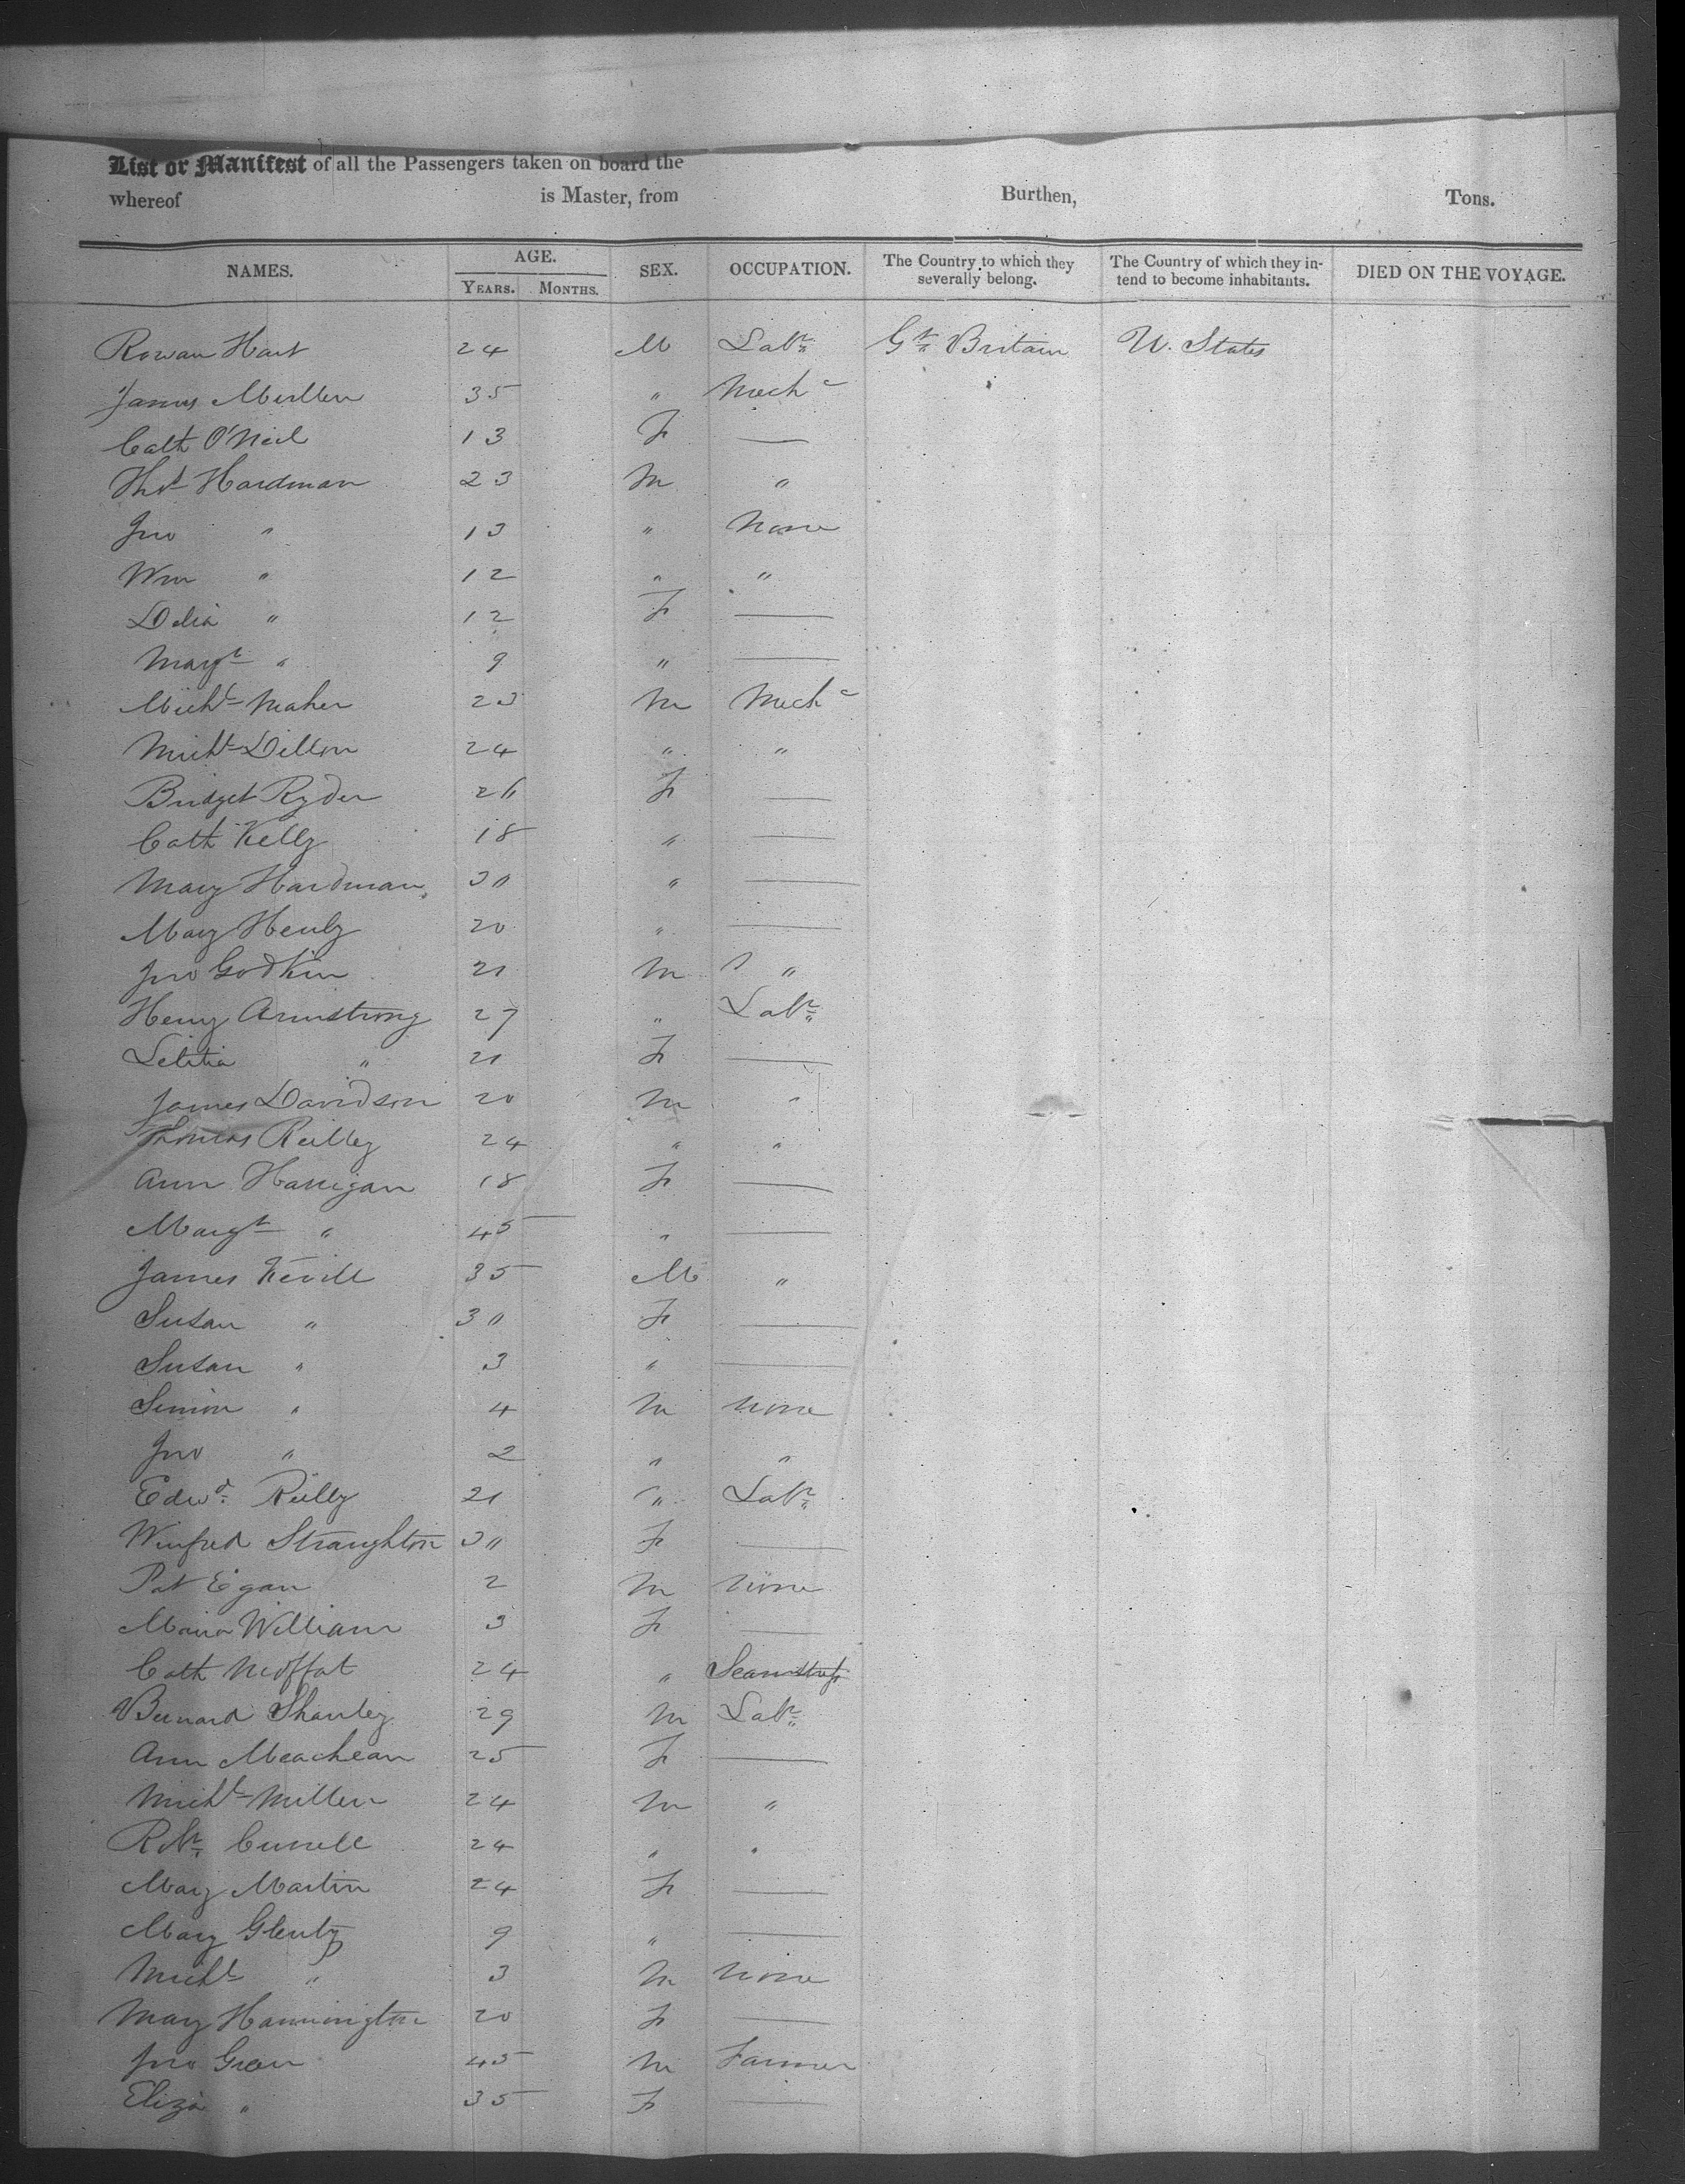 List or Manifest of all the Passengers taken on board the
whereof is Master, from Burthen, Tons.
NAMES. AGE. SEX. OCCUPATION. The Country to which they severally belong. The Country of which they intend to become inhabitants. DIED ON THE VOYAGE.
YEARS. MONTHS.
Rowan Hart 24 M Labr Gt Britain U. States
James Mullen 35 " Mechc
Cath O'Neil 13 F —
Thos Hardman 23 M "
Jno " 13 " None
Wm " 12 " "
Delia " 12 F —
Margt " 9 " —
Michl Maher 23 M Mechc
Michl Dillon 24 " "
Bridget Ryder 26 F —
Cath Kelly 18 " —
Mary Hardman 30 " —
Mary Henly 20 " —
Jno Godkin 21 M "
Henry Armstrong 27 " Labr
Letitia " 21 F —
James Davidson 20 M "
Thomas Reilley 24 " "
Ann Harrigan 18 F —
Margt " 45 " —
James Nevill 35 M "
Susan " 30 F —
Susan " 3 " —
Simon " 4 M None
Jno " 2 " "
Edwd Reilly 21 " Labr
Winfred Straughton 30 F —
Pat Egan 2 M None
Maria William 3 F —
Cath Moffat 24 " Seamstress
Bernard Shanley 29 M Labr
Ann Meachean 25 F —
Michl Millen 24 M "
Robt 24 " "
Mary Martin 24 F —
Mary Glenty 9 " —
Michl " 3 M None
Mary Hannington 20 F —
Jno 45 M Farmer
Eliza " 35 F —